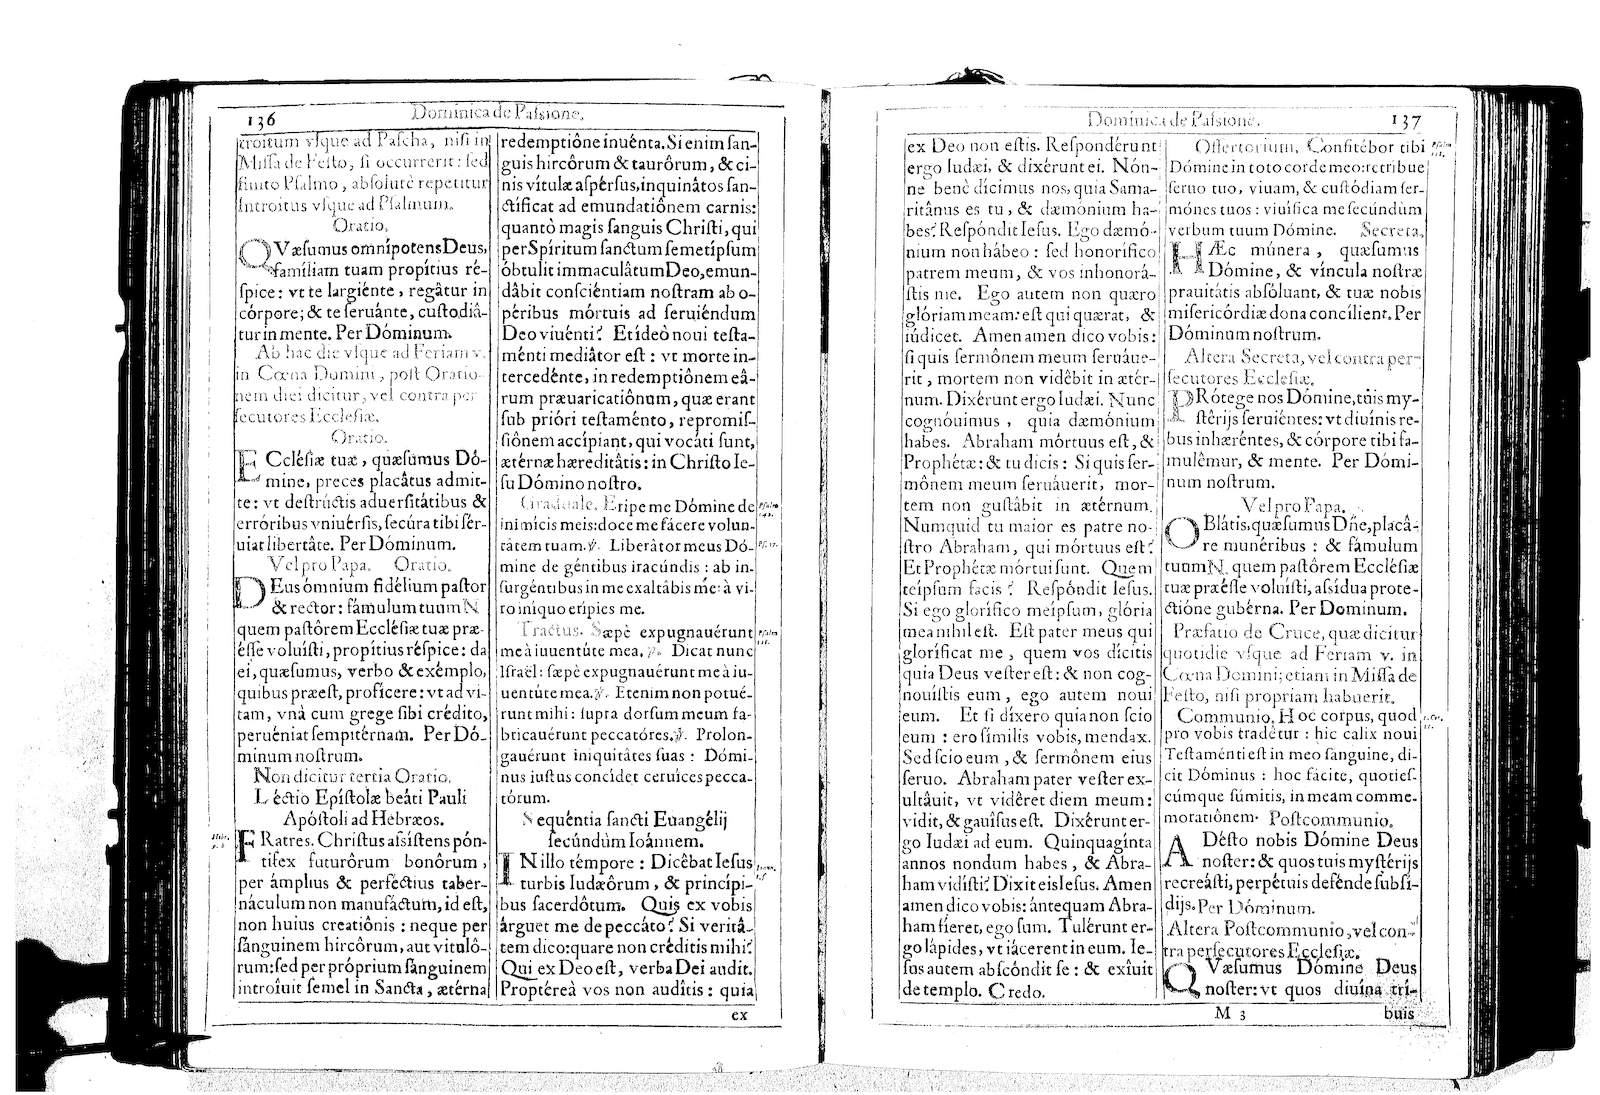 136
Dominica de Paſsione.
troitum vſque ad Paſcha, niſi in
Miſſa de Feſto, ſi occurrerit: ſed
finito Pſalmo, abſolutè repetitur
Introitus vſque ad Pſalmum.
Oratio.
QVæſumus omnípotens Deus,
famíliam tuam propítius ré-
ſpice: vt te largiénte, regâtur in
córpore; & te ſeruánte, cuſtodiâ-
tur in mente. Per Dóminum.
Ab hac die vſque ad Feriam v.
in Cœna Domini, poſt Oratio-
nem diei dicitur, vel contra per
ſecutores Eccleſiæ.
Oratio.
ECcléſiæ tuæ, quæſumus Dó-
mine, preces placâtus admit-
te: vt deſtrúctis aduerſitátibus &
erróribus vniuérſis, ſecúra tibi ſér-
uiat libertâte. Per Dóminum.
Vel pro Papa. Oratio.
DEus ómnium fidélium paſtor
& rector: fámulum tuum N
quem paſtórem Eccléſiæ tuæ præ-
éſſe voluíſti, propítius réſpice: da
ei, quæſumus, verbo & exémplo,
quibus præeſt, profícere: vt ad vi-
tam, vnà cum grege ſibi crédito,
peruéniat ſempitérnam. Per Dó-
minum noſtrum.
Non dicitur tertia Oratio.
Léctio Epíſtolæ beáti Pauli
Apóſtoli ad Hebræos.
FRatres. Chriſtus aſsíſtens pón-
tifex futurôrum bonôrum,
per ámplius & perféctius taber-
náculum non manufáctum, id eſt,
non huius creatiônis: neque per
ſánguinem hircôrum, aut vitulô-
rum: ſed per próprium ſanguinem
introíuit ſemel in Sancta, ætérna
redemptiône inuénta. Si enim ſan-
guis hircôrum & taurôrum, & ci-
nis vítulæ aſpérſus, inquinâtos ſan-
ctíficat ad emundatiônem carnis:
quantò magis ſanguis Chriſti, qui
per Spíritum ſanctum ſemetípſum
óbtulit immaculâtum Deo, emun-
dâbit conſciéntiam noſtram ab o-
péribus mórtuis ad ſeruiéndum
Deo viuénti? Et ídeò noui teſta-
ménti mediâtor eſt: vt morte in-
tercedénte, in redemptiônem eâ-
rum præuaricatiônum, quæ erant
ſub prióri teſtaménto, repromiſ-
ſiônem accípiant, qui vocáti ſunt,
ætérnæ hæreditâtis: in Chriſto Ie-
ſu Dómino noſtro.
Graduale. Eripe me Dómine de
inimícis meis: doce me fácere volun-
tátem tuam. ℣. Liberátor meus Dó-
mine de géntibus iracúndis: ab in-
ſurgéntibus in me exaltábis me: à vi-
ro iniquo erípies me.
Tractus. Sæpè expugnauérunt
me à iuuentúte mea. ℣. Dicat nunc
Iſraël: ſæpè expugnauérunt me à iu-
uentúte mea. ℣. Etenim non potué-
runt mihi: ſupra dorſum meum fa-
bricauérunt peccatóres. ℣. Prolon-
gauérunt iniquitátes ſuas: Dómi-
nus iuſtus concídet ceruíces pecca-
tórum.
Sequéntia ſancti Euangélij
ſecúndùm Ioánnem.
IN illo témpore: Dicêbat Ieſus
turbis Iudæôrum, & princípi-
bus ſacerdôtum. Quis ex vobis
árguet me de peccáto? Si veritâ-
tem dico: quare non créditis mihi?
Qui ex Deo eſt, verba Dei audit.
Proptéreà vos non audîtis: quia
ex
Dominica de Paſsione.
137
ex Deo non eſtis. Reſpondérunt
ergo Iudǽi, & dixérunt ei. Nón-
ne benè dícimus nos, quia Sama-
ritânus es tu, & dæmónium ha-
bes? Reſpóndit Ieſus. Ego dæmó-
nium non hábeo: ſed honorífico
patrem meum, & vos inhonorá-
ſtis me. Ego autem non quæro
glóriam meam: eſt qui quærat, &
iúdicet. Amen amen dico vobis:
ſi quis ſermônem meum ſeruáue-
rit, mortem non vidêbit in ætér-
num. Dixérunt ergo Iudǽi. Nunc
cognóuimus, quia dæmónium
habes. Abraham mórtuus eſt, &
Prophétæ: & tu dicis: Si quis ſer-
mônem meum ſeruáuerit, mor-
tem non guſtâbit in ætérnum.
Numquid tu maior es patre no-
ſtro Abraham, qui mórtuus eſt?
Et Prophétæ mórtui ſunt. Quem
teípſum facis? Reſpóndit Ieſus.
Si ego glorífico meípſum, glória
mea nihil eſt. Eſt pater meus qui
gloríficat me, quem vos dícitis
quia Deus veſter eſt: & non cog-
nouíſtis eum, ego autem noui
eum. Et ſi díxero quia non ſcio
eum: ero ſímilis vobis, mendax.
Sed ſcio eum, & ſermônem eius
ſeruo. Abraham pater veſter ex-
ultâuit, vt vidêret diem meum:
vidit, & gauíſus eſt. Dixérunt er-
go Iudæi ad eum. Quinquagínta
annos nondum habes, & Abra-
ham vidíſti? Dixit eis Ieſus. Amen
amen dico vobis: ántequam Abra-
ham fíeret, ego ſum. Tulérunt er-
go lápides, vt iácerent in eum. Ie-
ſus autem abſcóndit ſe: & exîuit
de templo. Credo.
Offertorium. Confitébor tibi
Dómine in toto corde meo: retribue
ſeruo tuo, viuam, & cuſtódiam ſer-
mónes tuos: viuífica me ſecúndùm
verbum tuum Dómine. Secreta.
HÆc múnera, quæſumus
Dómine, & víncula noſtræ
prauitátis abſóluant, & tuæ nobis
miſericórdiæ dona concílient. Per
Dóminum noſtrum.
Altera Secreta, vel contra per-
ſecutores Eccleſiæ.
PRótege nos Dómine, tuis my-
ſtérijs ſeruiéntes: vt diuínis re-
bus inhæréntes, & córpore tibi fa-
mulêmur, & mente. Per Dómi-
num noſtrum.
Vel pro Papa.
OBlátis, quæſumus Dñe, placâ-
re munéribus: & fámulum
tuum N. quem paſtórem Eccléſiæ
tuæ præéſſe voluíſti, aſsídua prote-
ctióne gubérna. Per Dominum.
Præfatio de Cruce, quæ dicitur
quotidie vſque ad Feriam v. in
Cœna Domini; etiam in Miſſa de
Feſto, niſi propriam habuerit.
Communio. Hoc corpus, quod
pro vobis tradétur: hic calix noui
Teſtaménti eſt in meo ſánguine, di-
cit Dóminus: hoc fácite, quotieſ-
cúmque ſúmitis, in meam comme-
moratiónem. Poſtcommunio.
ADéſto nobis Dómine Deus
noſter: & quos tuis myſtérijs
recreáſti, perpétuis defénde ſubſí-
dijs. Per Dóminum.
Altera Poſtcommunio, vel con-
tra perſecutores Eccleſiæ.
QVæſumus Dómine Deus
noſter: vt quos diuína trí-
M 3
buis